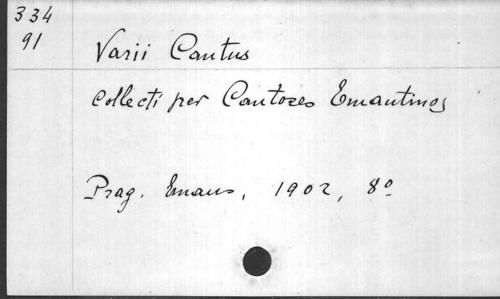 334
91
Varii Cantus
collecti per Cantores Emautinos
Prag. Emaus, 1902, 8º